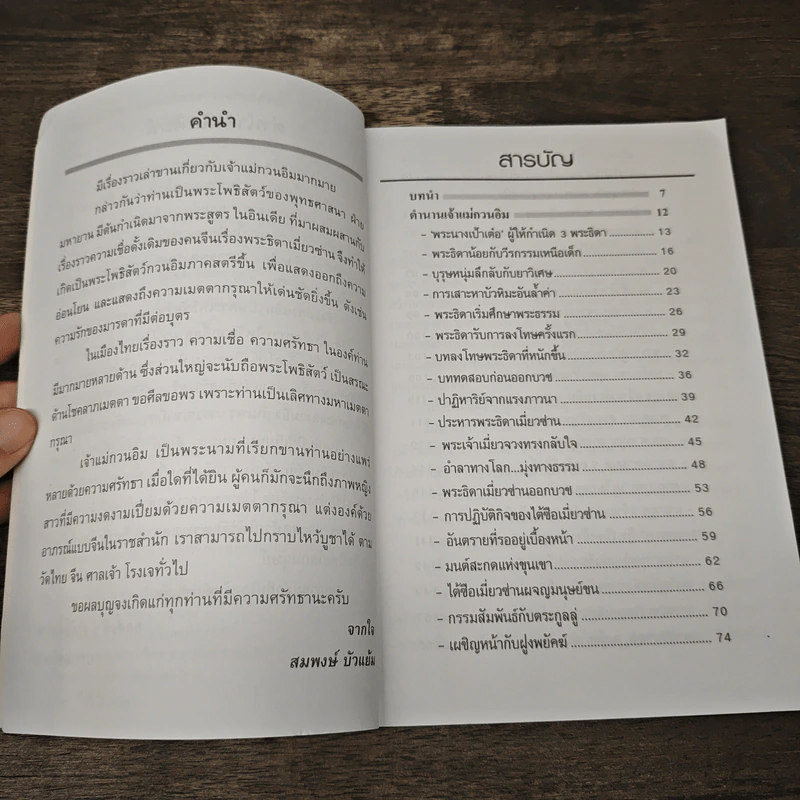 คำนำ
มีเรื่องราวเล่าขานเกี่ยวกับเจ้าแม่กวนอิมมากมาย
กล่าวกันว่าท่านเป็นพระโพธิสัตว์ของพุทธศาสนา ฝ่าย
มหายาน มีต้นกำเนิดมาจากพระสูตร ในอินเดีย ที่มาผสมผสานกับ
เรื่องราวความเชื่อดั้งเดิมของคนจีนเรื่องพระธิดาเมี่ยวซ่าน จึงทำให้
เกิดเป็นพระโพธิสัตว์กวนอิมภาคสตรีขึ้น เพื่อแสดงออกถึงความ
อ่อนโยน และแสดงถึงความเมตตากรุณาให้เด่นชัดยิ่งขึ้น ดังเช่น
ความรักของมารดาที่มีต่อบุตร
ในเมืองไทยเรื่องราว ความเชื่อ ความศรัทธา ในองค์ท่าน
มีมากมายหลายด้าน ซึ่งส่วนใหญ่จะนับถือพระโพธิสัตว์ เป็นสรณะ
ด้านโชคลาภเมตตา ขอศีลขอพร เพราะท่านเป็นเลิศทางมหาเมตตา
กรุณา
เจ้าแม่กวนอิม เป็นพระนามที่เรียกขานท่านอย่างแพร่
หลายด้วยความศรัทธา เมื่อใดที่ได้ยิน ผู้คนก็มักจะนึกถึงภาพหญิง
สาวที่มีความงดงามเปี่ยมด้วยความเมตตากรุณา แต่งองค์ด้วย
อาภรณ์แบบจีนในราชสำนัก เราสามารถไปกราบไหว้บูชาได้ ตาม
วัดไทย จีน ศาลเจ้า โรงเจทั่วไป
ขอผลบุญจงเกิดแก่ทุกท่านที่มีความศรัทธานะครับ
จากใจ
สมพงษ์ บัวแย้ม
สารบัญ
บทนำ 7
ตำนานเจ้าแม่กวนอิม 12
- 'พระนางเป้าเต๋อ' ผู้ให้กำเนิด 3 พระธิดา 13
- พระธิดาน้อยกับวีรกรรมเหนือเด็ก 16
- บุรุษหนุ่มลึกลับกับยาวิเศษ 20
- การเสาะหาบัวหิมะอันล้ำค่า 23
- พระธิดาเริ่มศึกษาพระธรรม 26
- พระธิดารับการลงโทษครั้งแรก 29
- บทลงโทษพระธิดาที่หนักขึ้น 32
- บททดสอบก่อนออกบวช 36
- ปาฏิหาริย์จากแรงภาวนา 39
- ประหารพระธิดาเมี่ยวซ่าน 42
- พระเจ้าเมี่ยวจวงทรงกลับใจ 45
- อำลาทางโลก...มุ่งทางธรรม 48
- พระธิดาเมี่ยวซ่านออกบวช 53
- การปฏิบัติกิจของไต้ซือเมี่ยวซ่าน 56
- อันตรายที่รออยู่เบื้องหน้า 59
- มนต์สะกดแห่งขุนเขา 62
- ไต้ซือเมี่ยวซ่านผจญมนุษย์ขน 66
- กรรมสัมพันธ์กับตระกูลลู่ 70
- เผชิญหน้ากับฝูงพยัคฆ์ 74